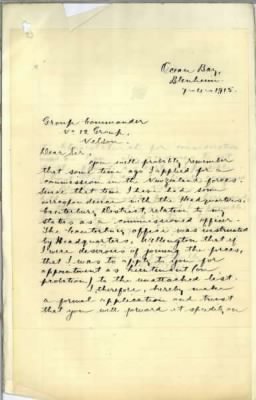 Ocean Bay,
Blenheim
7-4-1915.
Group Commander
No 12 Group,
Nelson
Dear Sir,
you will probably remember
that some time ago I applied for a
commission in the New Zealand forces.
Since that time I have had some
correspondence with the Headquarters.
Canterbury District, relation to my
status as a commissioned officer.
The Canterbury office was instructed
by Headquarters, Wellington that if
I were desirous of joining the forces,
that I was to apply to you for
appointment as lieutenant (on
probation) to the unattached list.
I, therefore, hereby make
a formal application and trust
that you will forward it speedily on